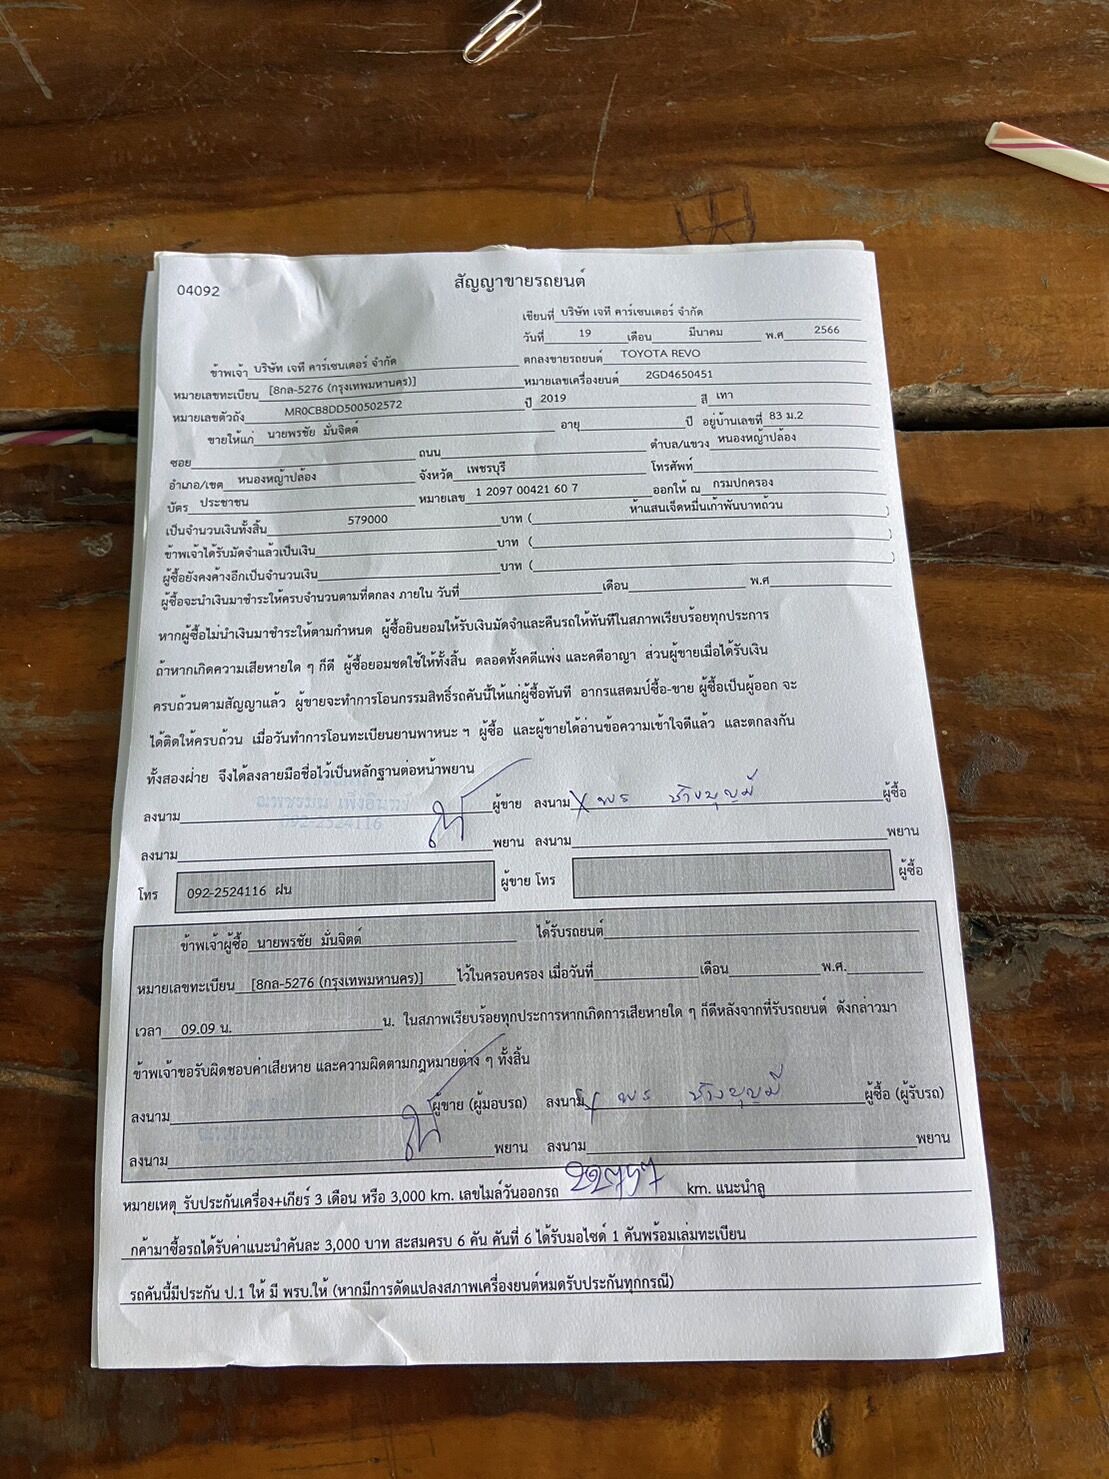 สัญญาขายรถยนต์
04092
เขียนที่ บริษัท เจที คาร์เซนเตอร์ จำกัด
วันที่ 19 เดือน มีนาคม พ.ศ 2566
ข้าพเจ้า บริษัท เจที คาร์เซนเตอร์ จำกัด ตกลงขายรถยนต์ TOYOTA REVO
หมายเลขทะเบียน [8กล-5276 (กรุงเทพมหานคร)] หมายเลขเครื่องยนต์ 2GD4650451
หมายเลขตัวถัง MR0CB8DD500502572 ปี 2019 สี เทา
ขายให้แก่ นายพรชัย มั่นจิตต์ อายุ ปี อยู่บ้านเลขที่ 83 ม.2
ซอย ถนน ตำบล/แขวง หนองหญ้าปล้อง
อำเภอ/เขต หนองหญ้าปล้อง จังหวัด เพชรบุรี โทรศัพท์
บัตร ประชาชน หมายเลข 1 2097 00421 60 7 ออกให้ ณ กรมปกครอง
เป็นจำนวนเงินทั้งสิ้น 579000 บาท ( ห้าแสนเจ็ดหมื่นเก้าพันบาทถ้วน )
ข้าพเจ้าได้รับมัดจำแล้วเป็นเงิน บาท ( )
ผู้ซื้อยังคงค้างอีกเป็นจำนวนเงิน บาท ( )
ผู้ซื้อจะนำเงินมาชำระให้ครบจำนวนตามที่ตกลง ภายใน วันที่ เดือน พ.ศ
หากผู้ซื้อไม่นำเงินมาชำระให้ตามกำหนด ผู้ซื้อยินยอมให้รับเงินมัดจำและคืนรถให้ทันทีในสภาพเรียบร้อยทุกประการ
ถ้าหากเกิดความเสียหายใด ๆ ก็ดี ผู้ซื้อยอมชดใช้ให้ทั้งสิ้น ตลอดทั้งคดีแพ่ง และคดีอาญา ส่วนผู้ขายเมื่อได้รับเงิน
ครบถ้วนตามสัญญาแล้ว ผู้ขายจะทำการโอนกรรมสิทธิ์รถคันนี้ให้แก่ผู้ซื้อทันที อากรแสตมป์ซื้อ-ขาย ผู้ซื้อเป็นผู้ออก จะ
ได้ติดให้ครบถ้วน เมื่อวันทำการโอนทะเบียนยานพาหนะ ฯ ผู้ซื้อ และผู้ขายได้อ่านข้อความเข้าใจดีแล้ว และตกลงกัน
ทั้งสองฝ่าย จึงได้ลงลายมือชื่อไว้เป็นหลักฐานต่อหน้าพยาน
092-2524116
ลงนาม ผู้ขาย ลงนาม พร ช้างบุญมี ผู้ซื้อ
ลงนาม พยาน ลงนาม พยาน
โทร 092-2524116 ฝน ผู้ขาย โทร ผู้ซื้อ
ข้าพเจ้าผู้ซื้อ นายพรชัย มั่นจิตต์ ได้รับรถยนต์
หมายเลขทะเบียน [8กล-5276 (กรุงเทพมหานคร)] ไว้ในครอบครอง เมื่อวันที่ เดือน พ.ศ.
เวลา 09.09 น. น. ในสภาพเรียบร้อยทุกประการหากเกิดการเสียหายใด ๆ ก็ดีหลังจากที่รับรถยนต์ ดังกล่าวมา
ข้าพเจ้าขอรับผิดชอบค่าเสียหาย และความผิดตามกฎหมายต่าง ๆ ทั้งสิ้น
ลงนาม ผู้ขาย (ผู้มอบรถ) ลงนาม พร ช้างบุญมี ผู้ซื้อ (ผู้รับรถ)
ลงนาม พยาน ลงนาม พยาน
หมายเหตุ รับประกันเครื่อง+เกียร์ 3 เดือน หรือ 3,000 km. เลขไมล์วันออกรถ km. แนะนำลู
กค้ามาซื้อรถได้รับค่าแนะนำคันละ 3,000 บาท สะสมครบ 6 คัน คันที่ 6 ได้รับมอไซด์ 1 คันพร้อมเล่มทะเบียน
รถคันนี้มีประกัน ป.1 ให้ มี พรบ.ให้ (หากมีการดัดแปลงสภาพเครื่องยนต์หมดรับประกันทุกกรณี)